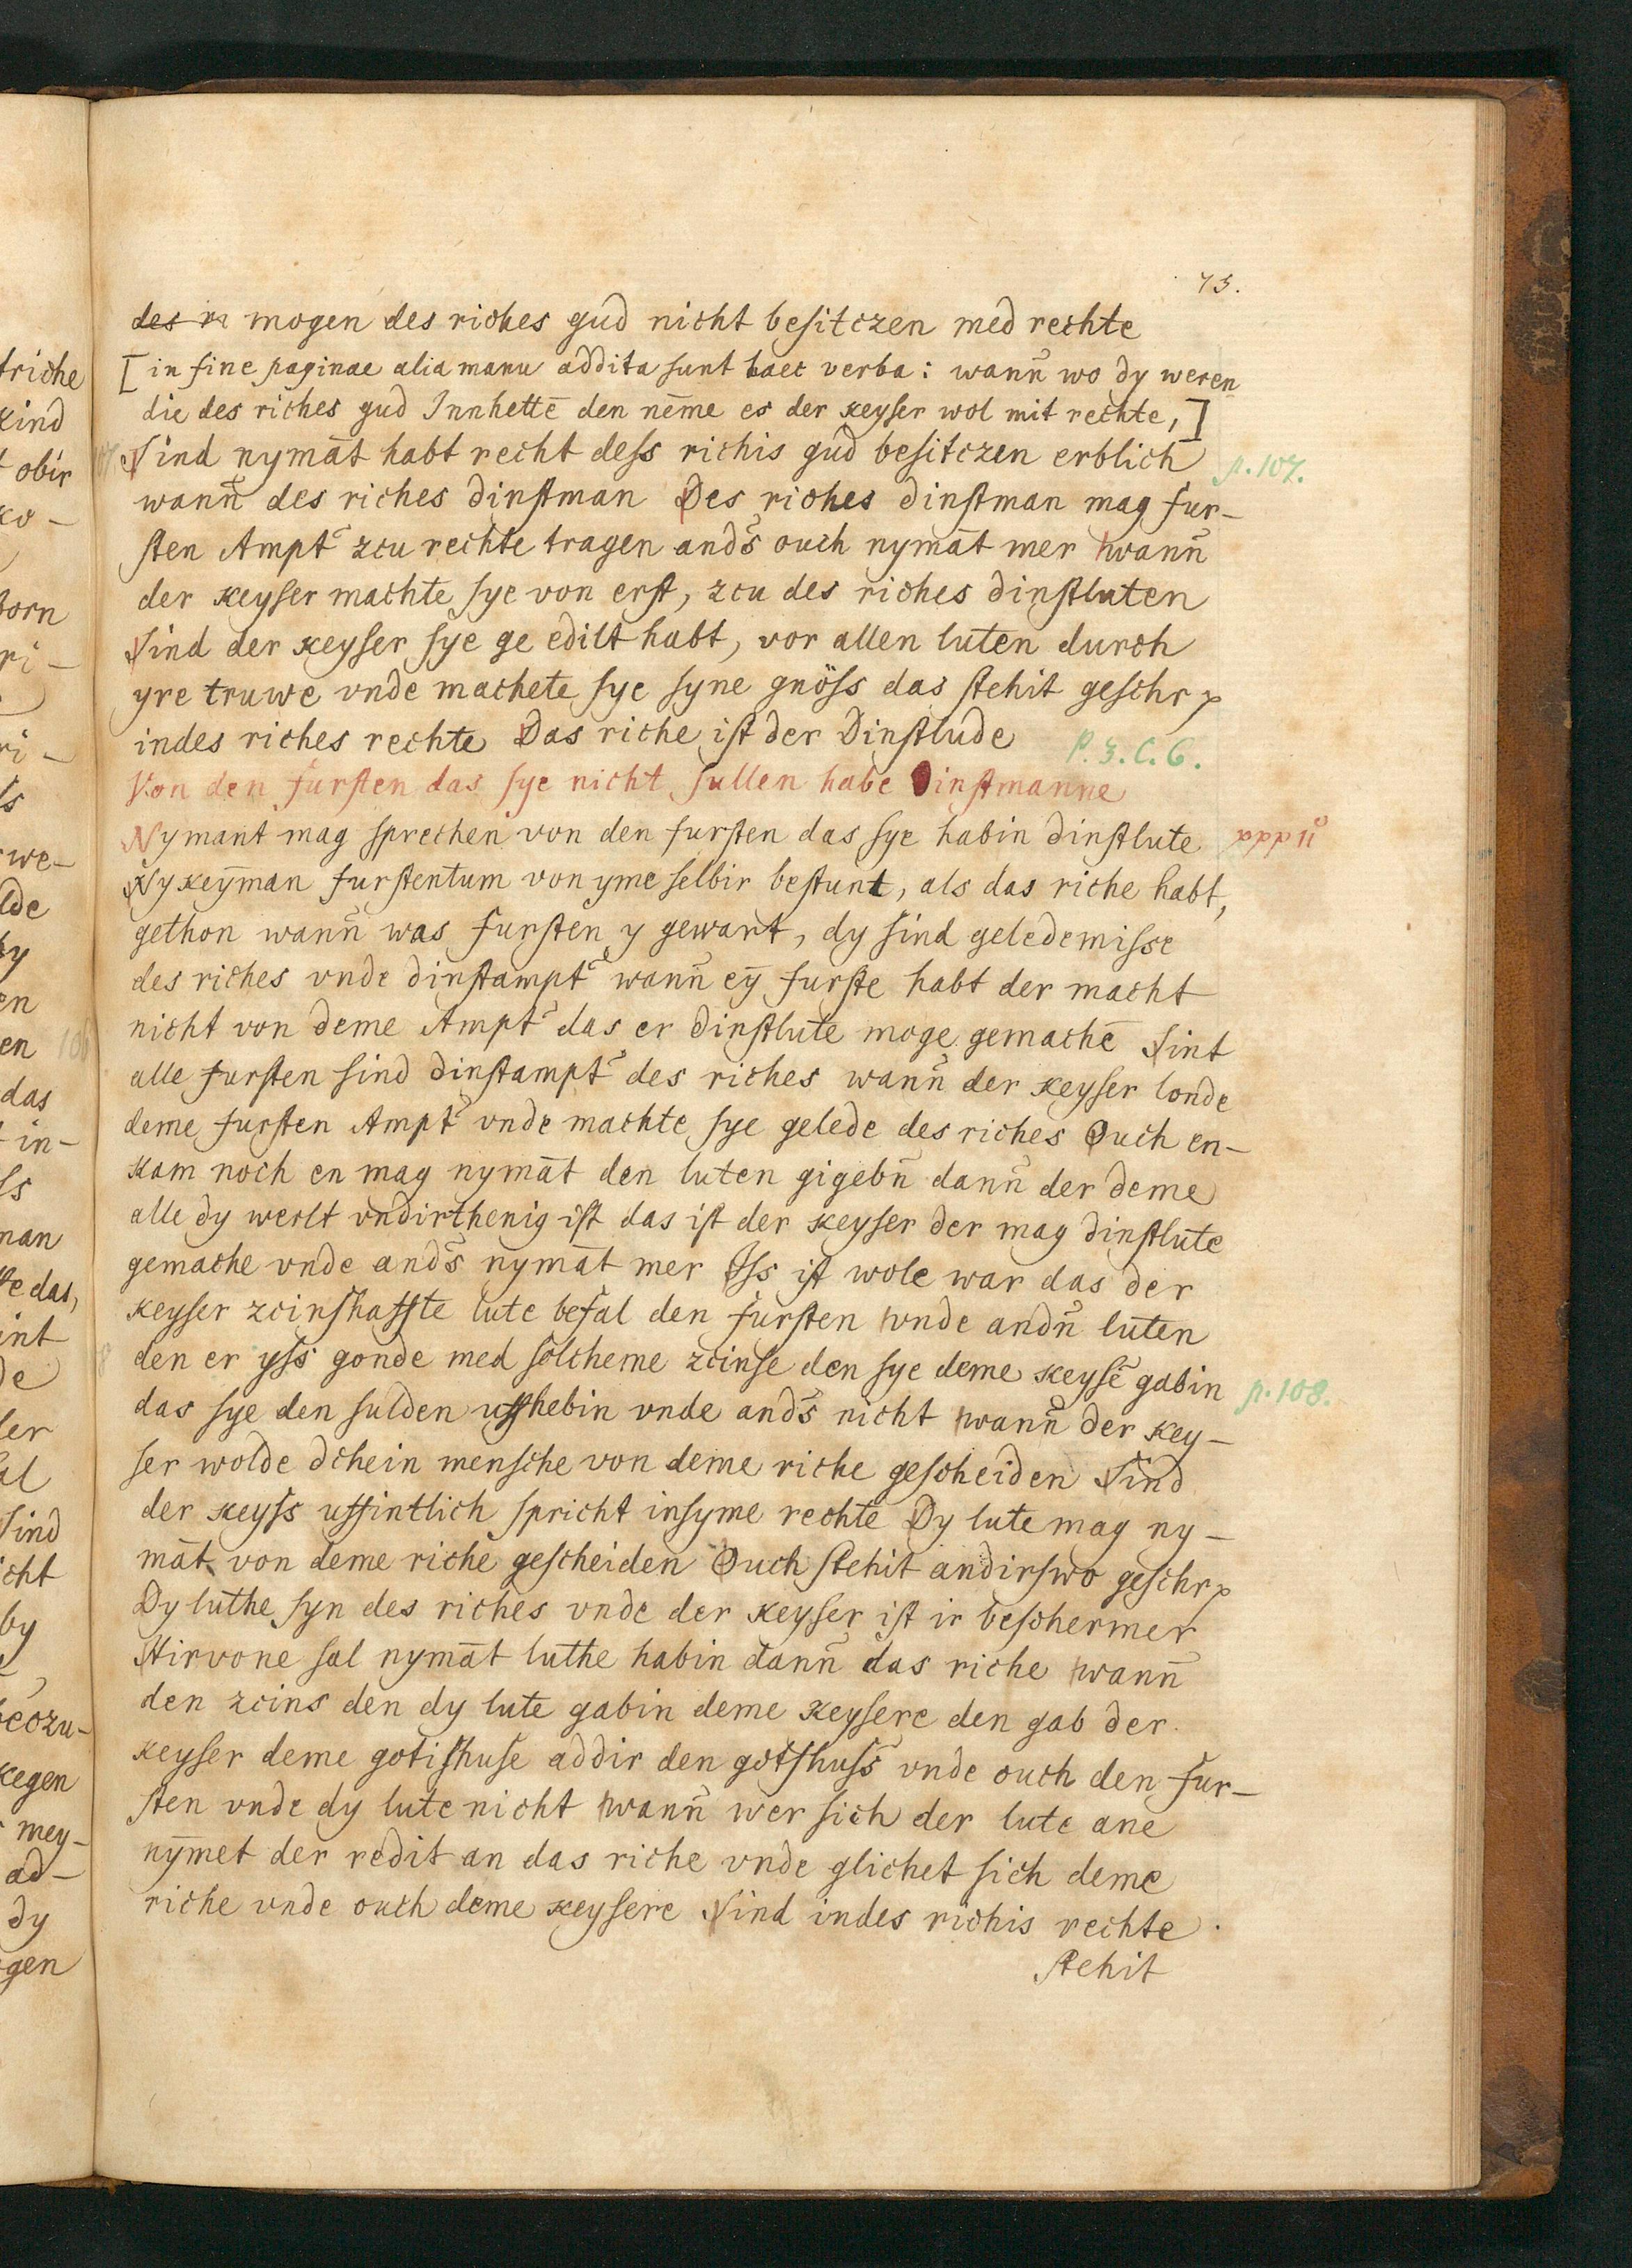 73.
des r mogen des riches gud nicht besitczen med rechte
[in fine paginae alia manu addita sunt haec verba: wann̄ wo dy weren
die des riches gud Innhettē den nēme es der keyser wol mit rechte,]
Sind nymāt habt recht dess richis gud besitczen erblich
p. 107.
wann̄ des riches dinstman Des riches dinstman mag fur-
sten Ampt̃ zcu rechte tragen and̃s ouch nymāt mer wann̄
der keyser machte sye von erst, zcu des riches dinstluten
Sind der keyser sye ge edilt habt, vor allen luten durch
yre truwe vnde machete sye syne gnöss das stehit geschr
indes riches rechte Das riche ist der Dinstlude
P. 3. C. 6.
Von den fursten das sye nicht sullen habe Dinstmanne
Nymant mag sprechen von den fursten das sye habin dinstlute
Ny keyman furstentum von yme selbir bestunt, als das riche habt,
gethon wann̄ was fursten y gewart, dy sind geledemisse
des riches vnde dinstampt̃ wann̄ eȳ furste habt der macht
nicht von deme Ampt̃ das er dinstlute moge gemachē Sint
alle fursten sind dinstampt̃ des riches wann̄ der keyser londe
deme fursten Ampt̃ vnde machte sye gelede des riches Ouch en-
kam noch en mag nymāt den luten gigebn̄ dann̄ der deme
alle dy werlt vndirthenig ist das ist der keyser der mag dinstlute
gemache vnde and̃s nymāt mer Iss ist wole war das der
keyser zcinshaffte lute befal den fursten vnde andn̄ luten
den er yss gonde med solcheme zcinse den sye deme keysē gabin
p. 108.
das sye den sulden uffhebin vnde and̃s nicht wann̄ der key-
ser wolde dchein mensche von deme riche gescheiden Sind
der keyss uffintlich spricht insyme rechte Dy lute mag ny-
māt von deme riche gescheiden Ouch stehit andirswo geschr
Dy luthe syn des riches vnde der keyser ist ir beschermer
Hirvone sal nymāt luthe habin dann̄ das riche wann̄
den zcins den dy lute gabin deme keysere den gab der
keyser deme gotishuse addir den gotshuss̃ vnde ouch den fur-
sten vnde dy lute nicht wann̄ wer sich der lute ane
nȳmet der redit an das riche vnde glichet sich deme
riche vnde ouch deme keysere Sind indes richis rechte
stehit